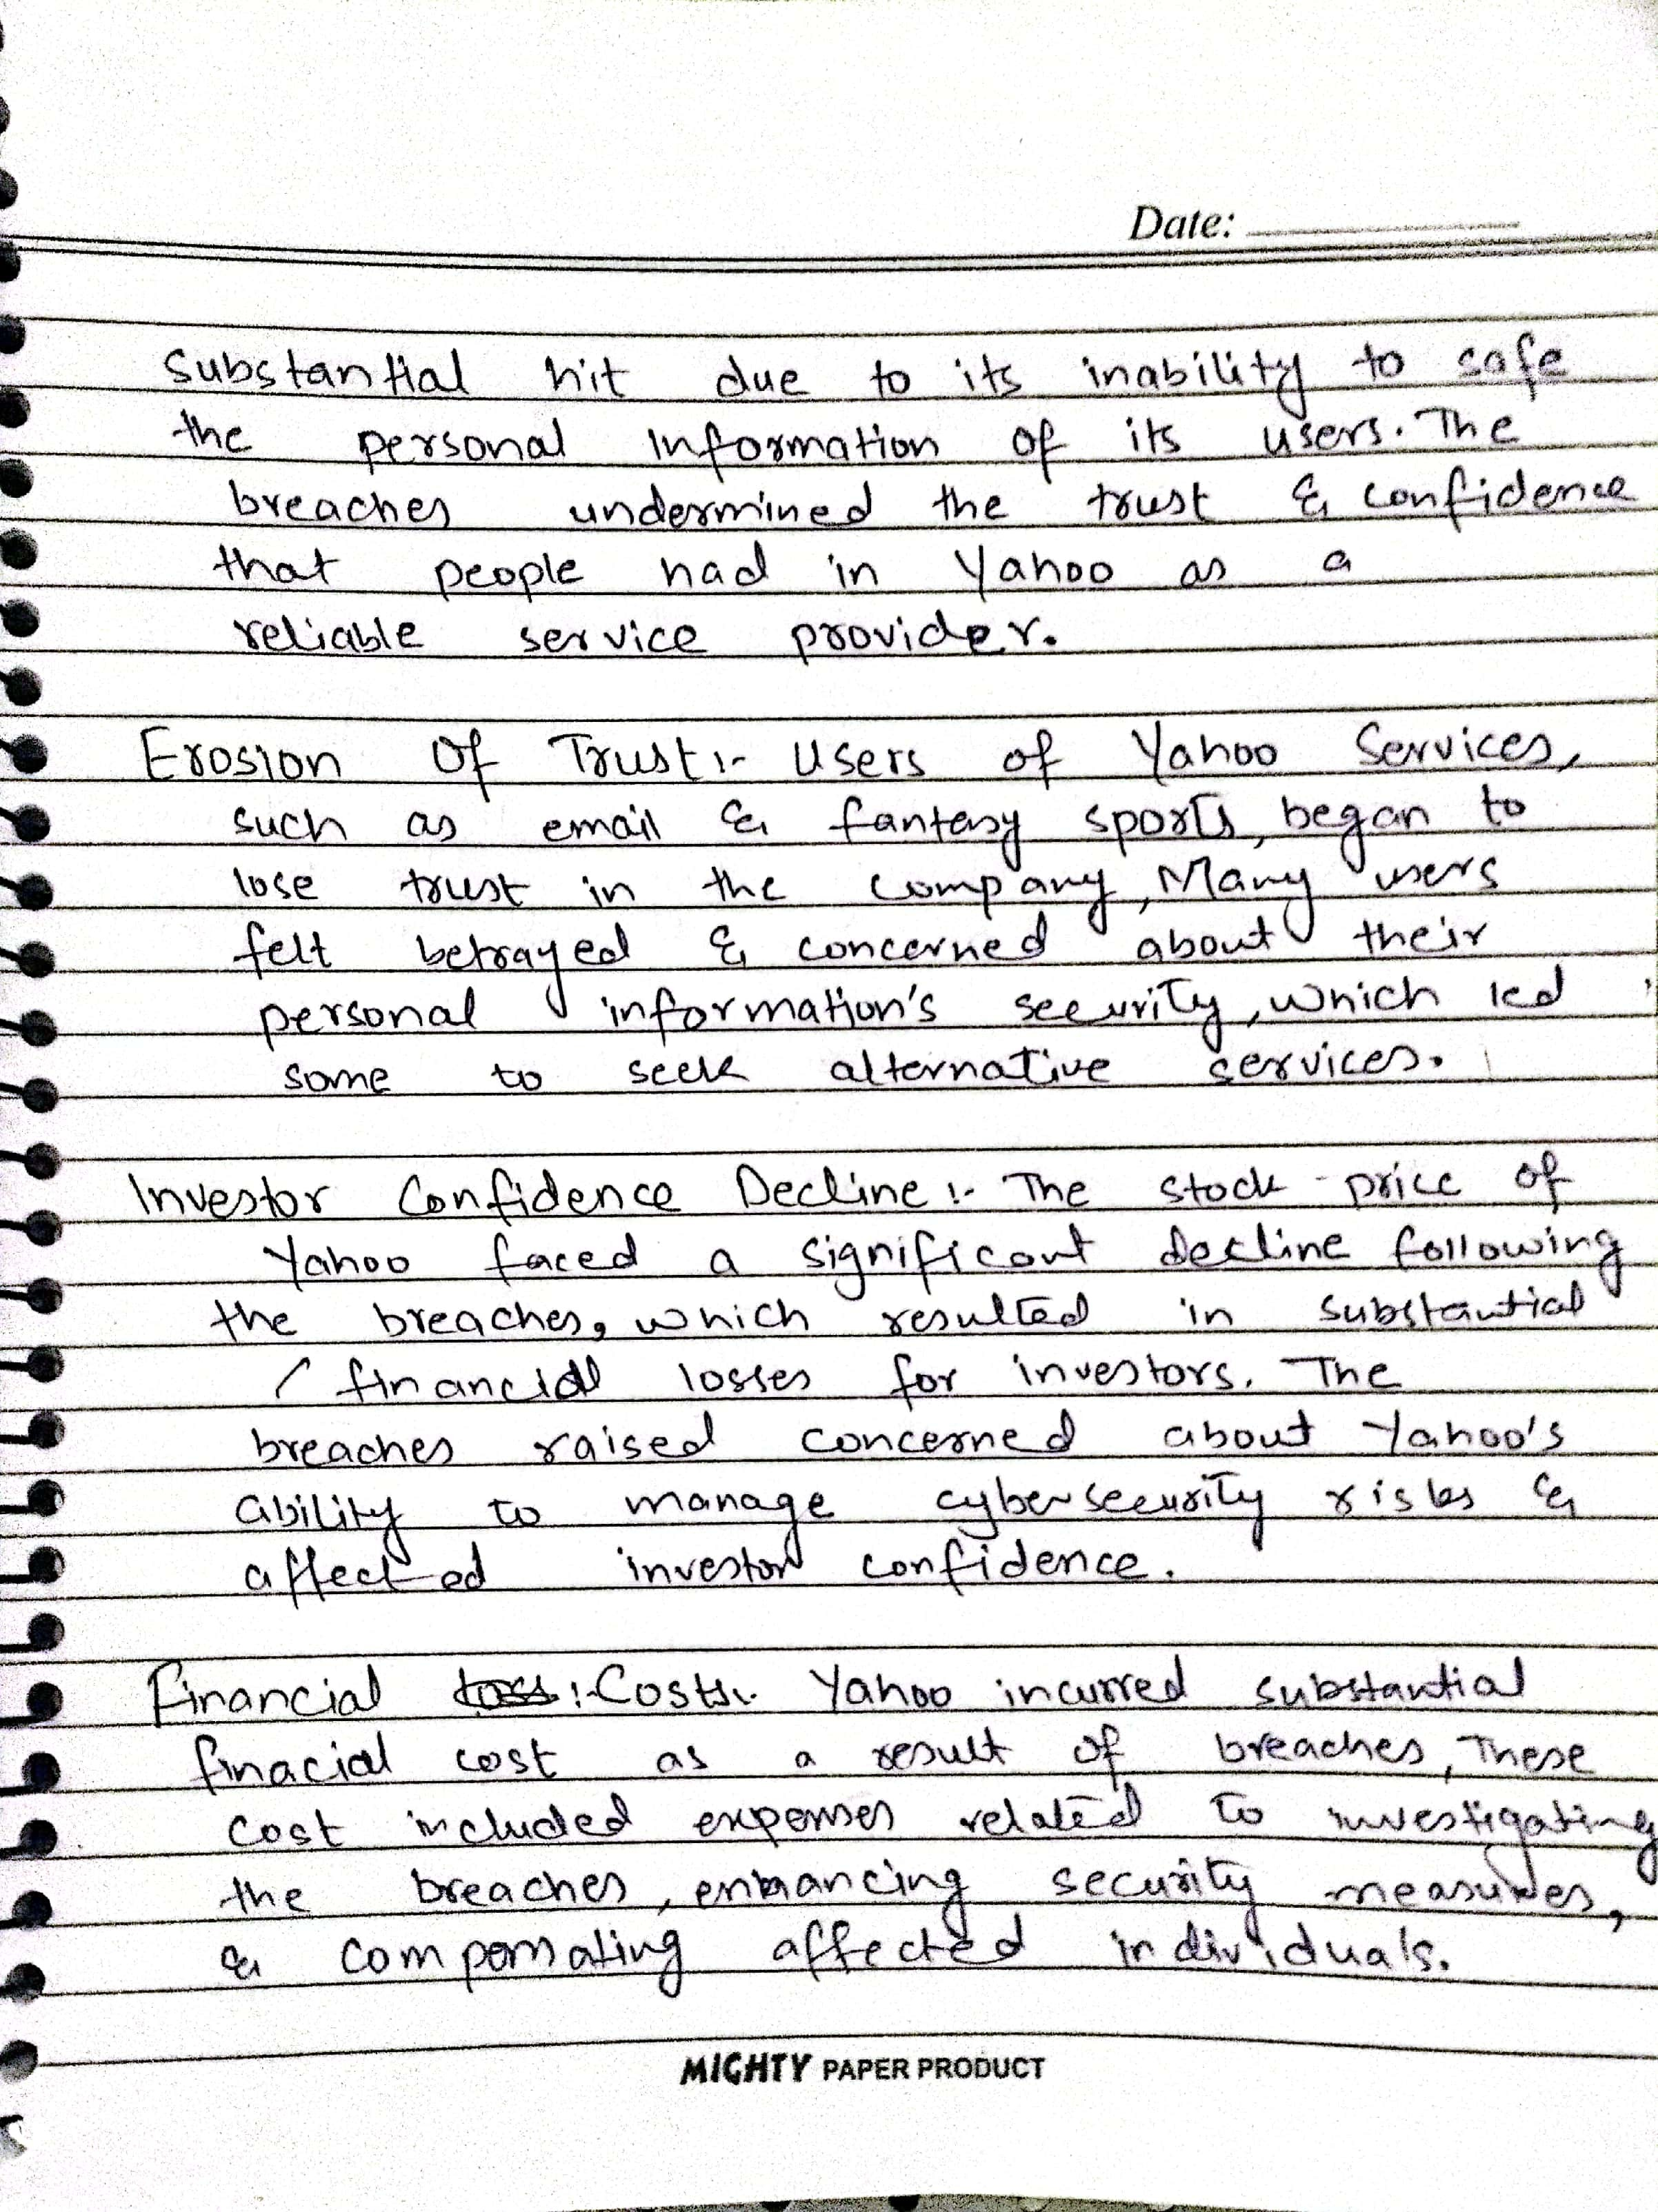 Date:
Substantial hit due to its inability to safe
the personal information of its users. The
breaches undermined the trust & confidence
that people had in Yahoo as a
reliable service provider.
Erosion Of Trust:- Users of Yahoo Services,
such as email & fantasy sports, began to
lose trust in the company, Many users
felt betrayed & concerned about their
personal information's security, which led
some to seek alternative services.
Investor Confidence Decline:- The stock price of
Yahoo faced a significant decline following
the breaches, which resulted in substantial
financial losses for investors. The
breaches raised concerned about Yahoo's
ability to manage cybersecurity risks &
affected investor confidence.
Financial loss:-Costs:- Yahoo incurred substantial
finacial cost as a result of breaches, These
cost included expenses related to investigating
the breaches, enhancing security measures,
& compensating affected individuals.
MIGHTY PAPER PRODUCT